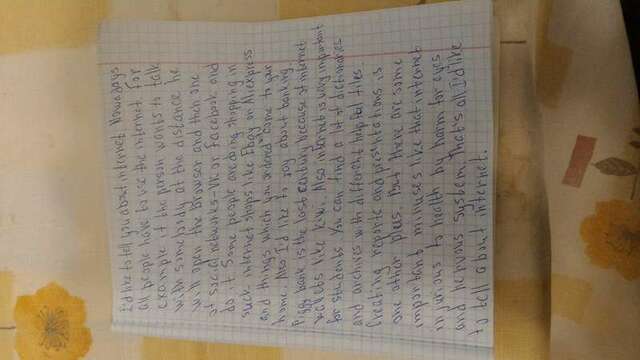 I'd like to tell you about internet. Nowadays
all people have to use the internet. For
example if the person wants to talk
with somebody at the distance he
will open the browser and then one
of social networks VK or Facebook and
do it. Some people are doing shopping in
such internet shops like Ebay or Aliexpress
and things which you ordered come to your
home. Also I'd like to say about banking.
Piggy bank is the last century because of internet
wallets like kiwi. Also internet is very important
for students. You can find a lot of dictionaries
and archives with different helpful files.
Creating reports and presentations is
one other plus. But there are some
important minuses like that internet
injurious to health by harm for eyes
and nervous system. That's all I'd like
to tell about internet.